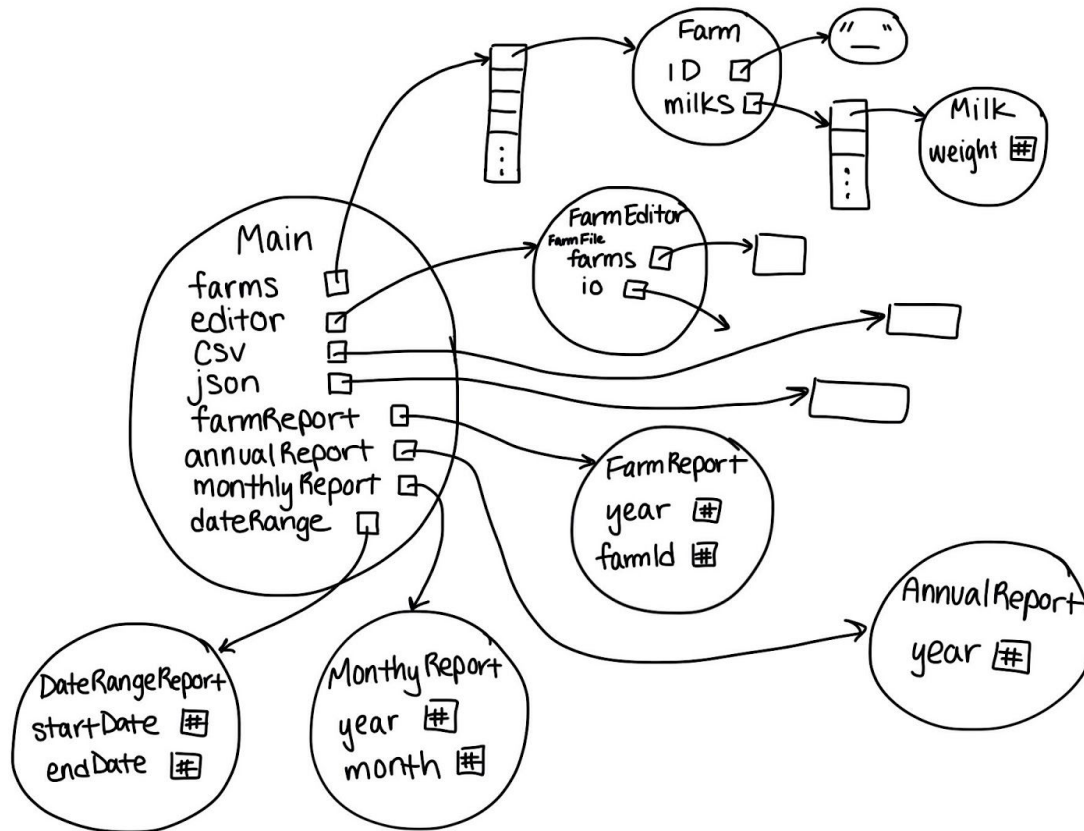 Farm
ID
milks
" _ "
Milk
weight #
Main
farms
editor
csv
json
farmReport
annualReport
monthlyReport
dateRange
FarmEditor
FarmFile
farms
io
FarmReport
year #
farmId #
AnnualReport
year #
DateRangeReport
startDate #
endDate #
MonthyReport
year #
month #